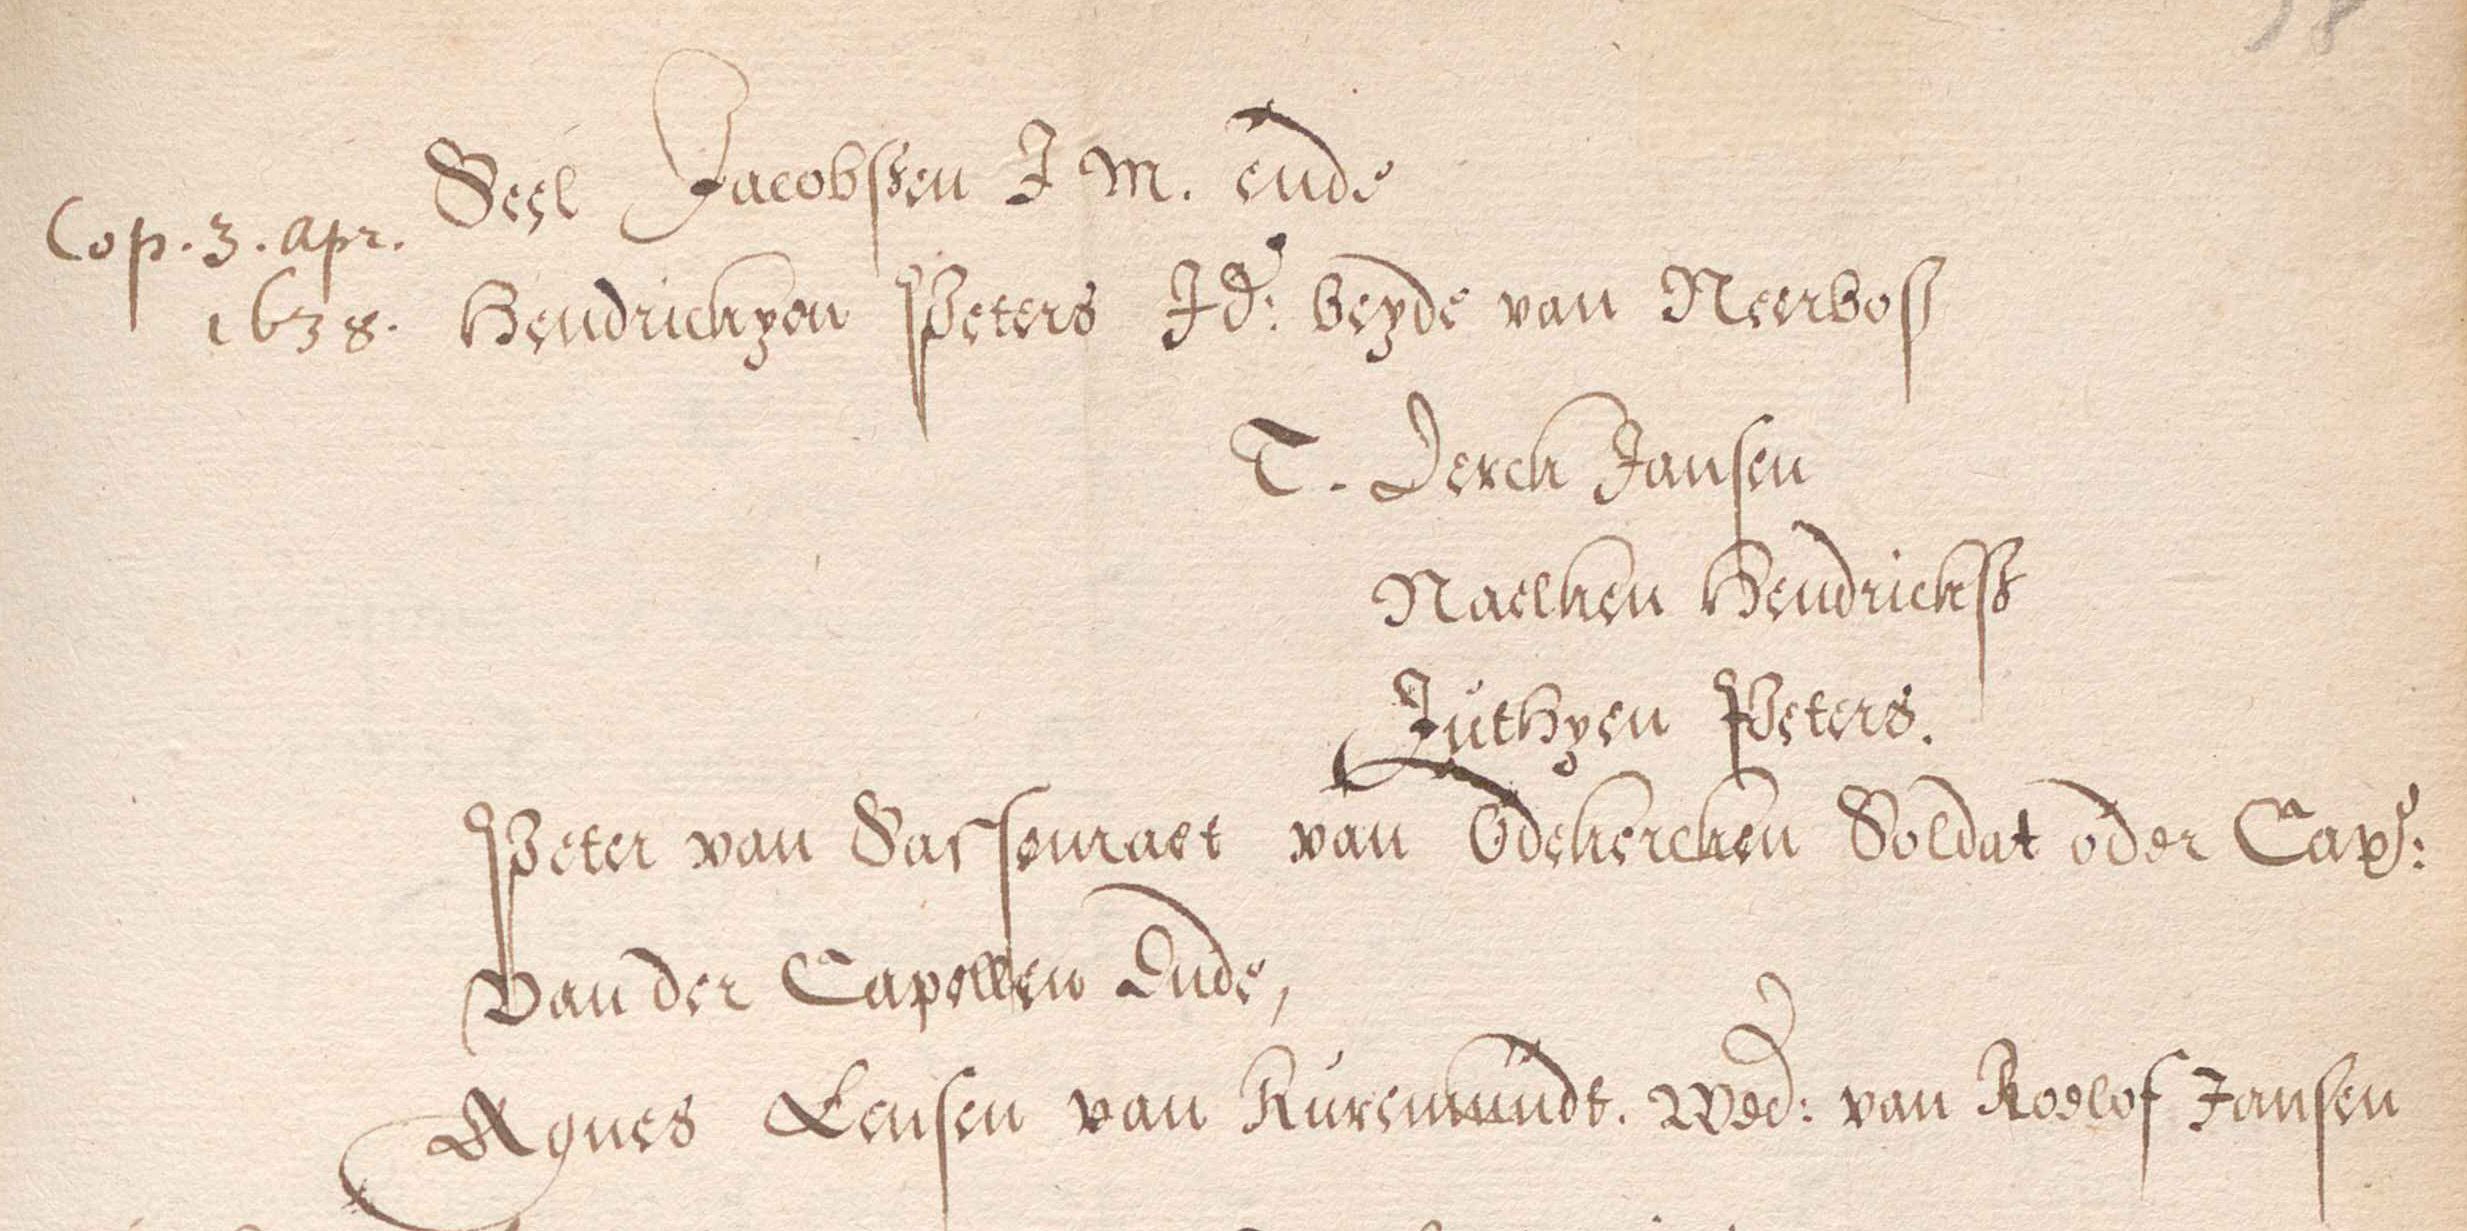 Seel Jacobssen J M. ende
Cop. 3. Apr.
1638. Hendrickyen Peters Jd: beyde van Neerbos
T. Derck Jansen
Naelken Hendrickss
Juthyen Peters.
Peter van Sassenraet van Odekercken Soldat oder Cap:
Van der Capellen Ende,
Agnes Lensen van Ruremundt. Wed: van Roelof Jansen